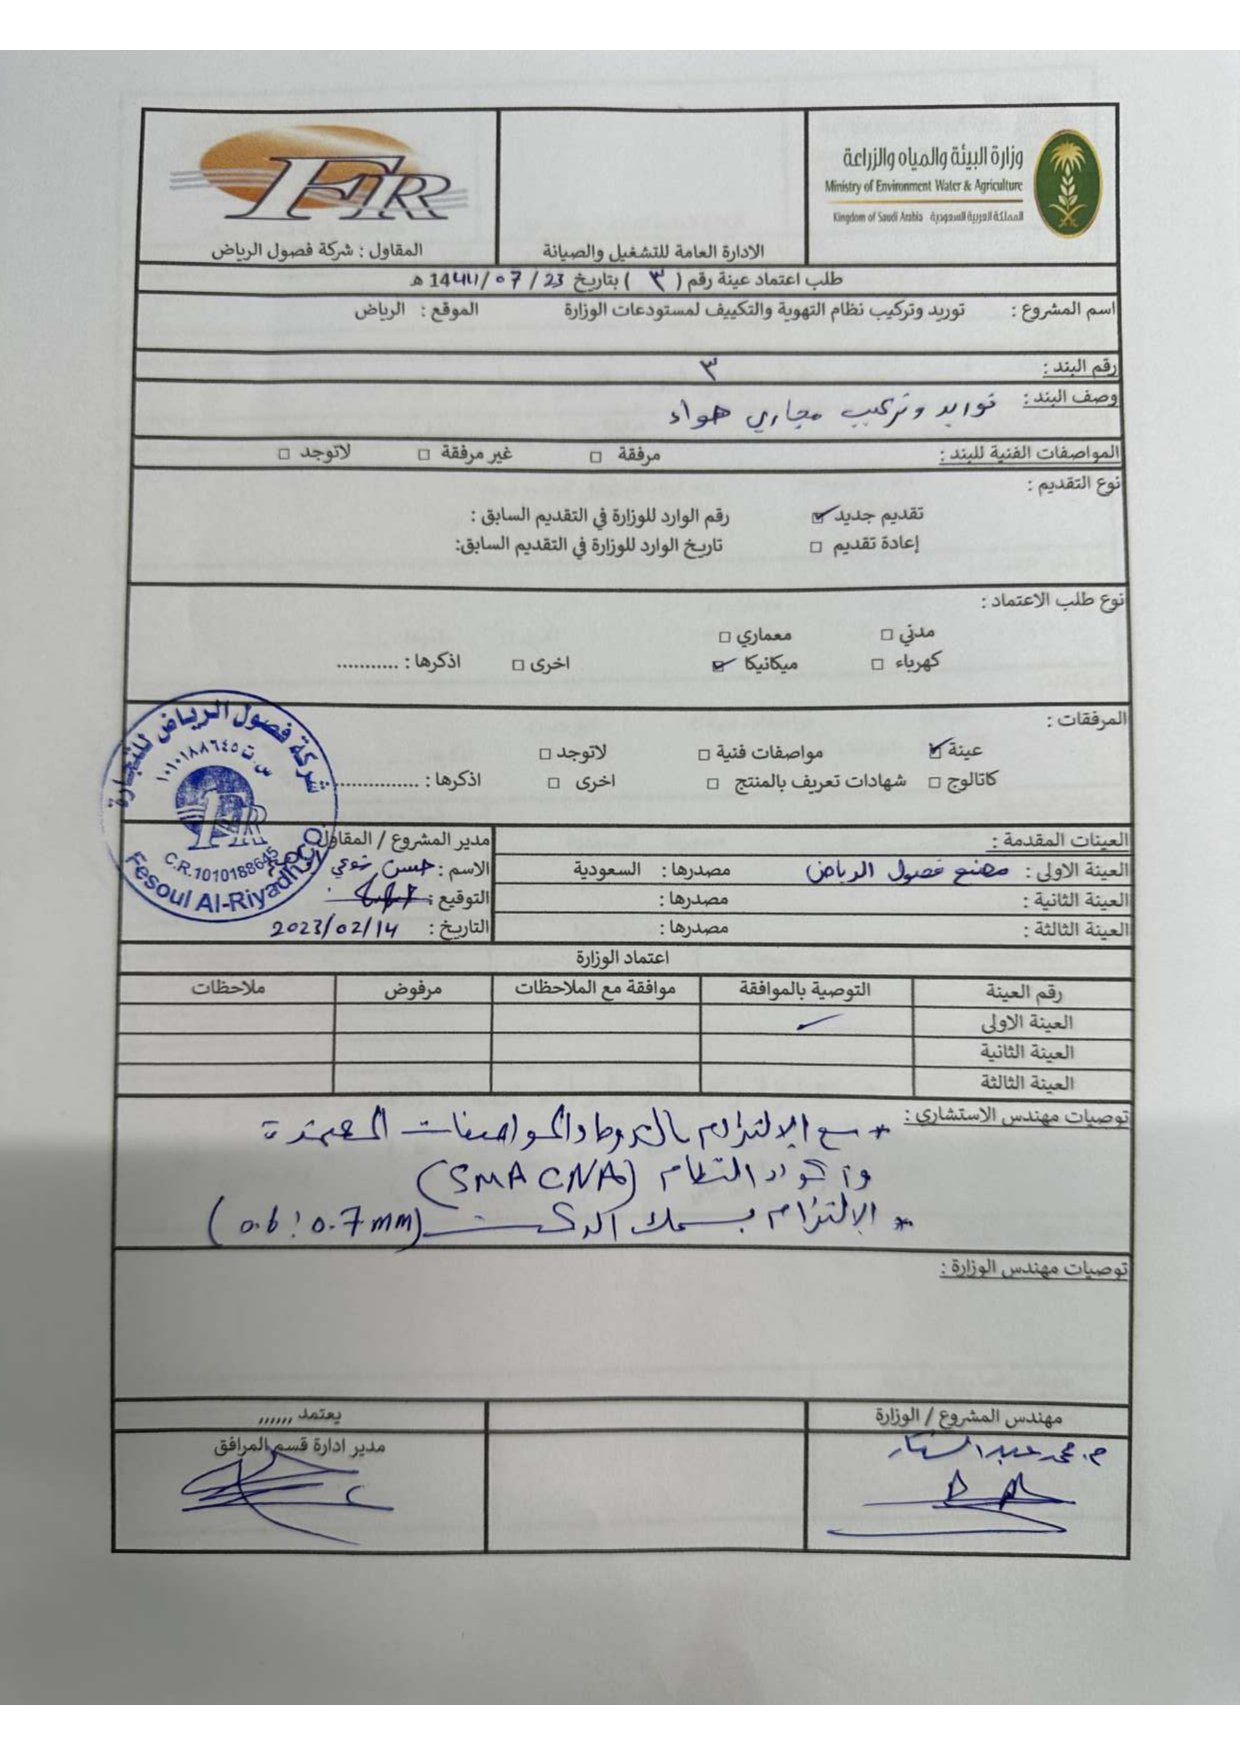 وزارة البيئة والمياه والزراعة
Ministry of Environment Water & Agriculture
Kingdom of Saudi Arabia المملكة العربية السعودية
الادارة العامة للتشغيل والصيانة
FR
المقاول : شركة فصول الرياض
طلب اعتماد عينة رقم ( ٣ ) بتاريخ 23 / 07 / 1444 هـ
اسم المشروع : توريد وتركيب نظام التهوية والتكييف لمستودعات الوزارة الموقع : الرياض
رقم البند : ٣
وصف البند : توريد وتركيب مجاري هواء
المواصفات الفنية للبند : مرفقة □ غير مرفقة □ لاتوجد □
نوع التقديم :
تقديم جديد ☑ رقم الوارد للوزارة في التقديم السابق :
إعادة تقديم □ تاريخ الوارد للوزارة في التقديم السابق:
نوع طلب الاعتماد :
مدني □ معماري □
كهرباء □ ميكانيكا ☑ اخرى □ اذكرها : ...........
المرفقات :
عينة ☑ مواصفات فنية □ لاتوجد □
كاتالوج □ شهادات تعريف بالمنتج □ اخرى □ اذكرها : ................
شركة فصول الرياض للتجارة
س.ت ١٠١٠١٨٨٦٤٥
FR
C.R.1010188645
Fesoul Al-Riyadh CO.
العينات المقدمة : مدير المشروع / المقاول
العينة الاولى : مصنع فصول الرياض مصدرها : السعودية الاسم : حسن
العينة الثانية : مصدرها : التوقيع :
العينة الثالثة : مصدرها : التاريخ : 2023/02/14
اعتماد الوزارة
رقم العينة التوصية بالموافقة موافقة مع الملاحظات مرفوض ملاحظات
العينة الاولى ✓
العينة الثانية
العينة الثالثة
توصيات مهندس الاستشاري : * مع الالتزام بالشروط والمواصفات المعتمدة
واكواد النظام (SMACNA)
* الالتزام بسمك الدكت (0.6 ! 0.7 mm)
توصيات مهندس الوزارة :
مهندس المشروع / الوزارة يعتمد ,,,,,,
م. محمد عبد الستار مدير ادارة قسم المرافق